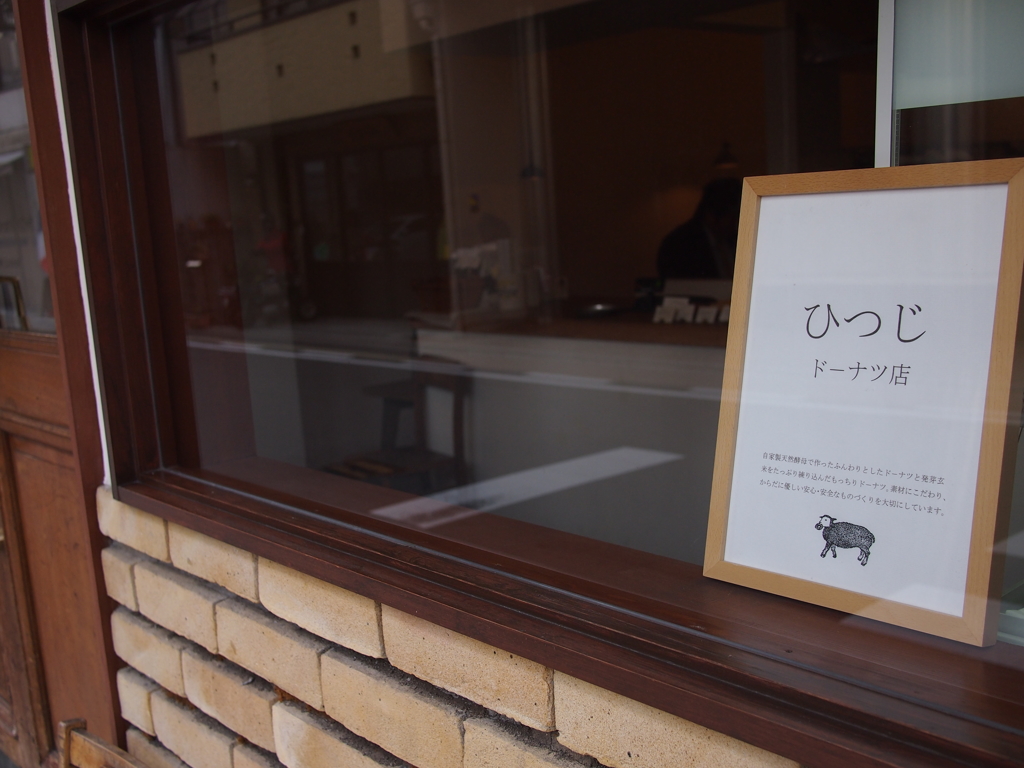 ひつじ
ドーナツ店
自家製天然酵母で作ったふんわりとしたドーナツと発芽玄
米をたっぷり練り込んだもっちりドーナツ。素材にこだわり、
からだに優しい安心・安全なものづくりを大切にしています。